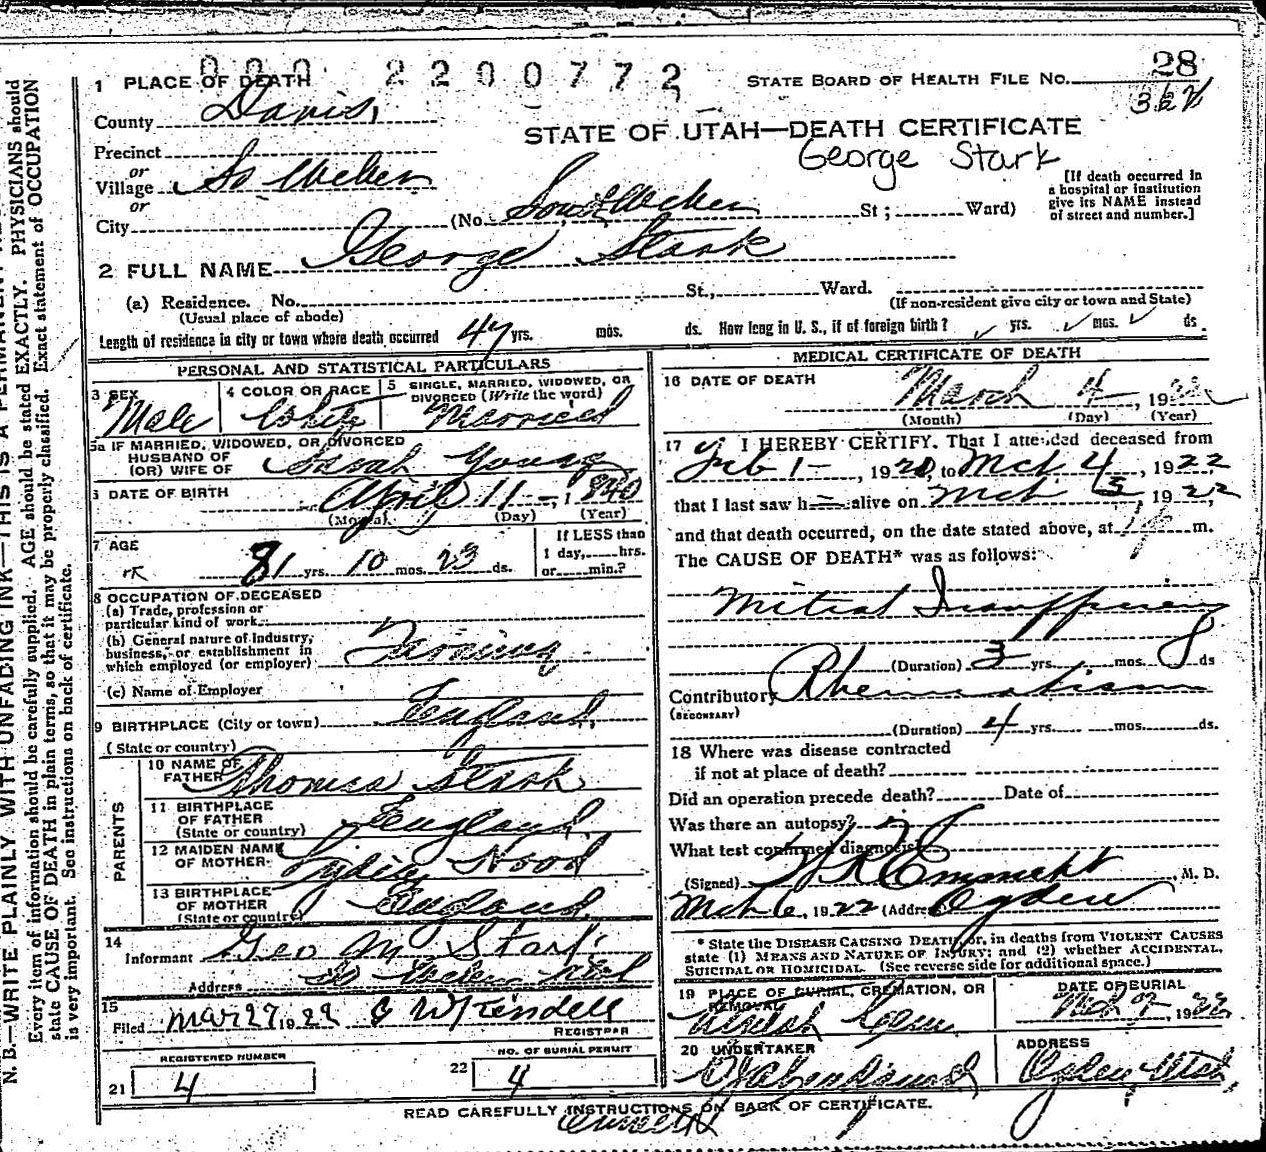 1 PLACE OF DEATH
2200772
STATE BOARD OF HEALTH FILE NO. 28
County Davis,
STATE OF UTAH—DEATH CERTIFICATE
George Stark
Precinct
or
Village So Weber
or
City (No. South Weber St; Ward)
[If death occurred in
a hospital or institution
give its NAME instead
of street and number.]
2 FULL NAME George Stark
(a) Residence. No. St., Ward.
(Usual place of abode) (If non-resident give city or town and State)
Length of residence in city or town where death occurred 47 yrs. mos. ds. How long in U. S., if of foreign birth? yrs. mos. ds.
PERSONAL AND STATISTICAL PARTICULARS
3 SEX Male
4 COLOR OR RACE White
5 SINGLE, MARRIED, WIDOWED, OR
DIVORCED (Write the word) Married
5a IF MARRIED, WIDOWED, OR DIVORCED
HUSBAND OF
(OR) WIFE OF Sarah Young
6 DATE OF BIRTH April 11 - 1840
(Month) (Day) (Year)
7 AGE 81 yrs. 10 mos. 23 ds.
If LESS than
1 day, hrs.
or min.?
8 OCCUPATION OF DECEASED
(a) Trade, profession or
particular kind of work
(b) General nature of Industry,
business, or establishment in
which employed (or employer) Farming
(c) Name of Employer
9 BIRTHPLACE (City or town) England,
(State or country)
PARENTS
10 NAME OF
FATHER Thomas Stark
11 BIRTHPLACE
OF FATHER
(State or country) England
12 MAIDEN NAME
OF MOTHER Lydia Hood
13 BIRTHPLACE
OF MOTHER
(State or country) England
14
Informant Geo M Stark
Address So Weber Utah
15
Filed Mar 27 1922 G W Kendell
REGISTRAR
REGISTERED NUMBER
21 4
NO. OF BURIAL PERMIT
22 4
MEDICAL CERTIFICATE OF DEATH
16 DATE OF DEATH
March 4, 1922
(Month) (Day) (Year)
17 I HEREBY CERTIFY. That I attended deceased from
Feb 1 - 1920, to Mch 4, 1922
that I last saw h alive on Mch 3, 1922
and that death occurred, on the date stated above, at m.
The CAUSE OF DEATH* was as follows:
Mitral Insufficiency
(Duration) 3 yrs. mos. ds
Contributory Rheumatism
(SECONDARY)
(Duration) 4 yrs. mos. ds.
18 Where was disease contracted
if not at place of death?
Did an operation precede death? Date of
Was there an autopsy?
What test confirmed diagnosis?
(Signed) Emmett, M. D.
Mch 6, 1922 (Address) Ogden
* State the DISEASE CAUSING DEATH, or, in deaths from VIOLENT CAUSES
state (1) MEANS AND NATURE OF INJURY; and (2) whether ACCIDENTAL,
SUICIDAL OR HOMICIDAL. (See reverse side for additional space.)
19 PLACE OF BURIAL, CREMATION, OR
REMOVAL
Cem
DATE OF BURIAL
Mch 7, 1922
20 UNDERTAKER
ADDRESS
Ogden Utah
READ CAREFULLY INSTRUCTIONS ON BACK OF CERTIFICATE.
N. B.—WRITE PLAINLY WITH UNFADING INK—THIS IS A PERMANENT
Every item of information should be carefully supplied. AGE should be stated EXACTLY. PHYSICIANS should
state CAUSE OF DEATH in plain terms, so that it may be properly classified. Exact statement of OCCUPATION
is very important. See instructions on back of certificate.